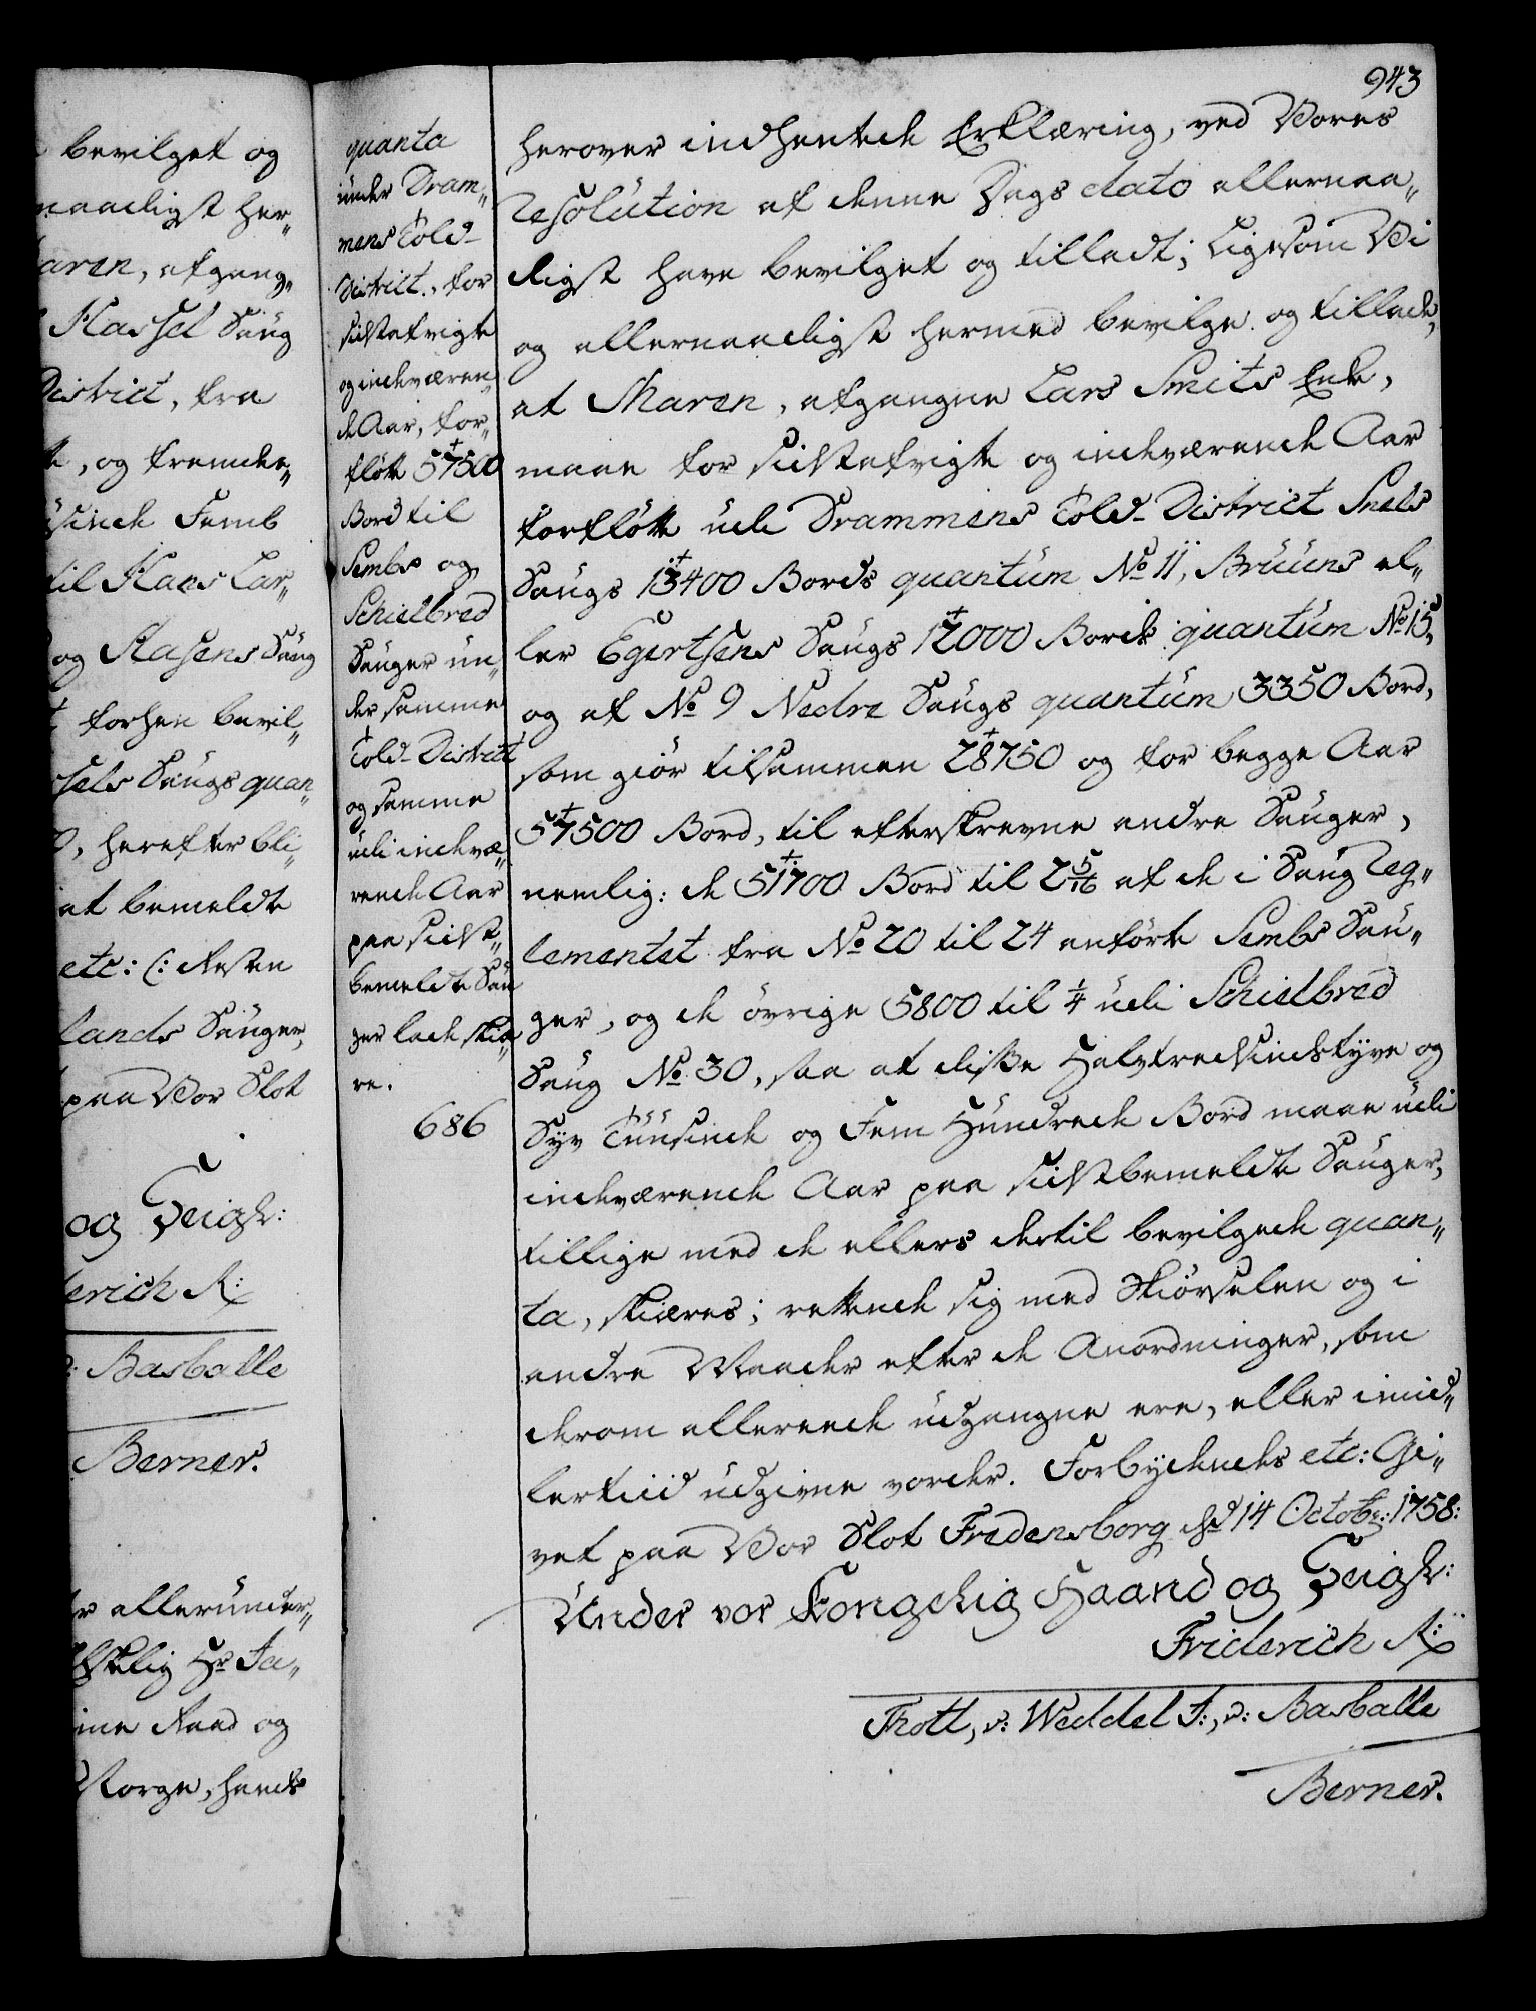 943
bevilget og
naadigst her„
aren, afgang„
Hassel Saug
District, fra
, og fremdee„
usinde Femb
til Hans Lar„
og Aasens Saug
forhen bevil„
sels Saugs quan„
, herefter bli„
at bemeldte
etc: (: Resten
lands Sauger,
paa Vor Slot
og Seigl:
derich R:
v: Barballe
Berner.
allerunder„
Hr Ja„
ine Raad og
Norge, hands
quanta
under Dram„
mens Told-
District, for
sidstafvigte
og indværen„
de Aar, for„
flötte 57500
Bord til
Sembs og
Schielbred
Sauger un„
der samme
Told-District
og samme
udi indvæ„
rende Aar
paa sidst„
bemeldte Sau„
ger lade skiæ„
re.
686
herover indhentede Erklæring, ved Vores
Resolution af denne Dags dato allernaa„
digst have bevilget og tilladt; Ligesom Vi
og allernaadigst hermed bevilge og tillade,
at Maren, afgangne Lars Smits Enke,
maae for sidstafvigte og indværende Aar
forflötte udi Drammens Told-District Snels
Saugs 13400 Bords quantum No 11, Bruuns el„
ler Egertsens Saugs 12000 Bords quantum No 15,
og af No 9 Nedre Saugs quantum 3350 Bord,
som giör tilsammen 28750 og for begge Aar
57500 Bord, til efterskrevne andre Sauger,
nemlig: de 51700 Bord til 2 5/16 af de i Saug Reg„
lementet fra No 20 til 24 anförte Sembs Sau„
ger, og de övrige 5800 til 1/4 udi Schielbred
Saug No 30, saa at disse Halvtredsindstyve og
Syv Tuusinde og Fem Hundrede Bord maae udi
indværende Aar paa sidstbemeldte Sauger,
tillige med de ellers dertil bevilgede quan„
ta, skiæres; rettende sig med Skiörselen og i
andre Maader efter de Anordninger, som
derom allerede udgangne ere, eller imid„
lertiid udgivne vorder. Forbydendes etc: Gi„
vet paa Vor Slot Fredensborg dhd 14 Octobr: 1758:
Under vor Kongelig Haand og Seigl:
Friderich R:
Thott, v: Weddel F:, v: Barballe
Berner.